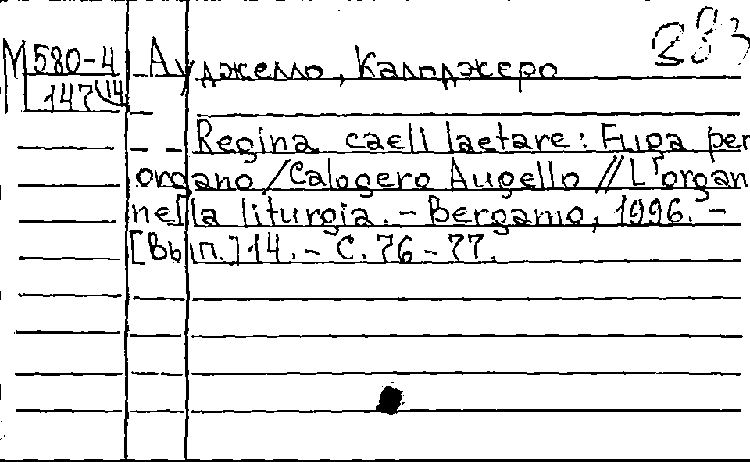 283
М580-4 Ауджелло, Калоджеро
147/14
Regina caeli laetare: Fuga per
organo / Calogero Augello // L'organ
nella liturgia. - Bergamo, 1996. -
[Вып.] 14. - С. 76-77.